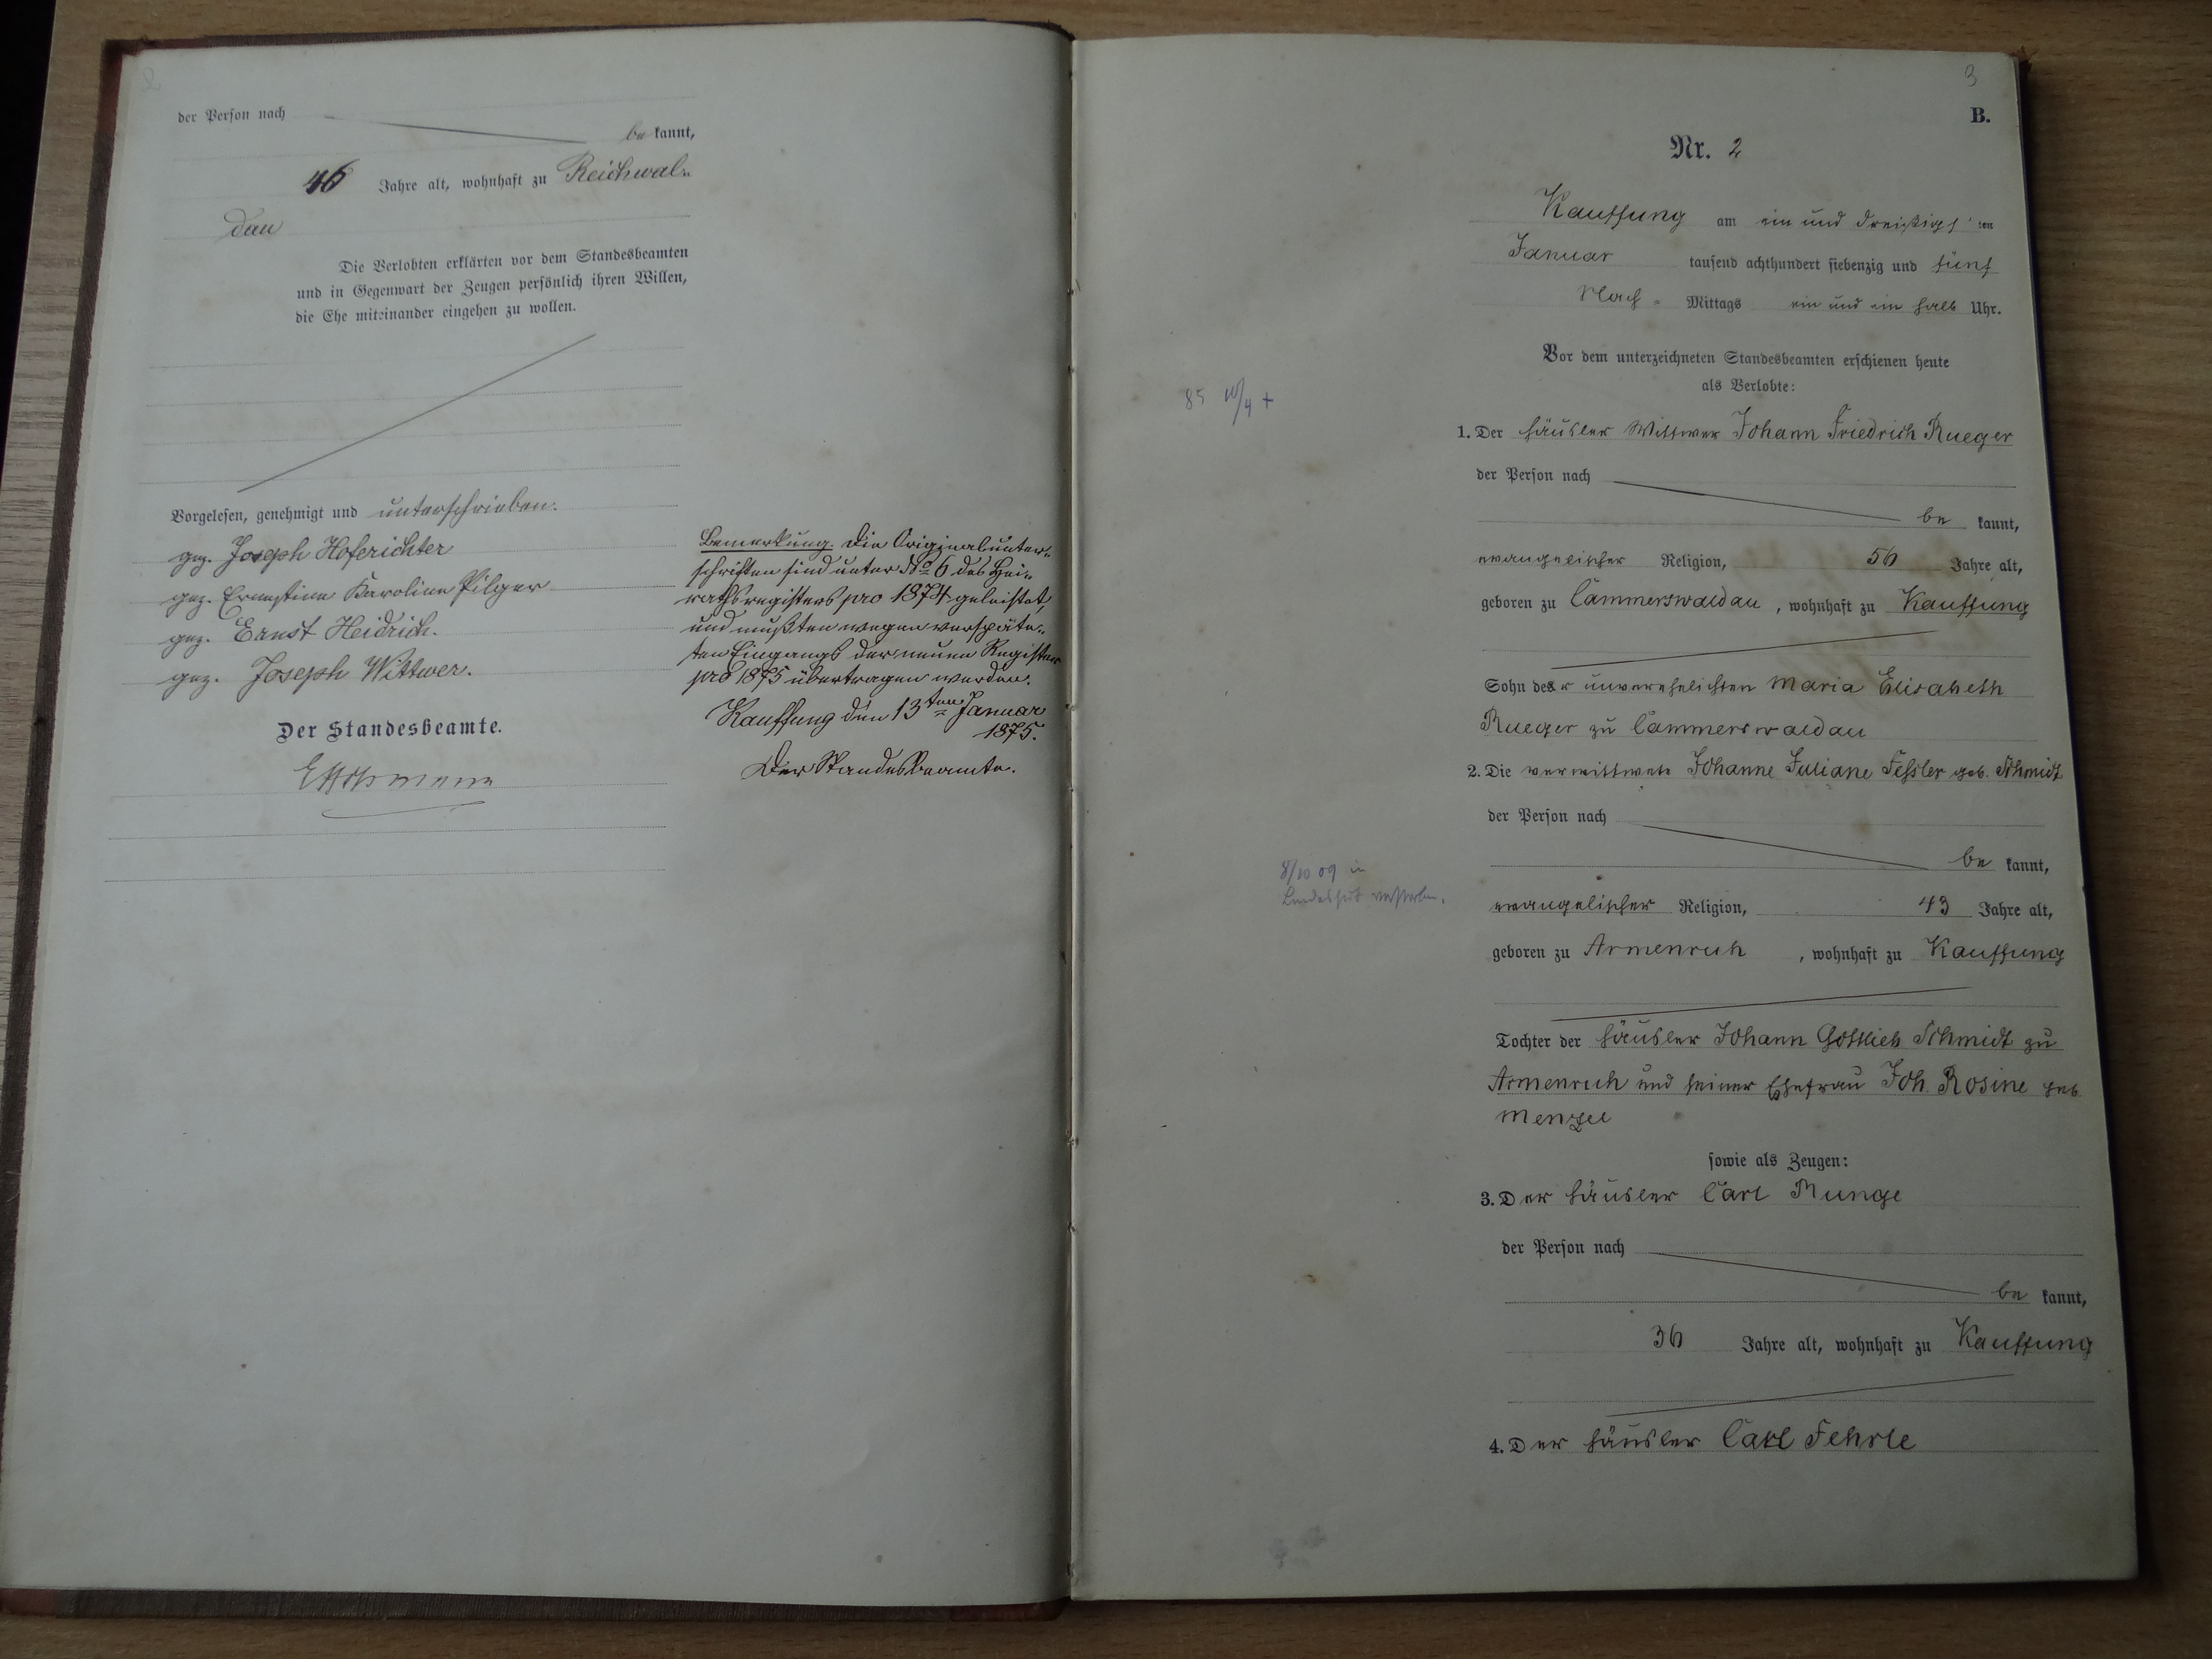 2
der Person nach
be kannt,
46 Jahre alt, wohnhaft zu Reichwal-
dau
Die Verlobten erklärten vor dem Standesbeamten
und in Gegenwart der Zeugen persönlich ihren Willen,
die Ehe miteinander eingehen zu wollen.
Vorgelesen, genehmigt und unterschrieben.
gez. Joseph Hoferichter
gez. Ernestine Karoline Pilger
gez. Ernst Heidrich.
gez. Joseph Wittwer.
Der Standesbeamte.
Bemerkung. Die Originalunter-
schriften sind unter No 6 des Hei-
rathsregisters pro 1874 geleistet,
und mußten wegen verspäte-
ten Eingangs der neuen Register
pro 1875 übertragen werden.
Kauffung den 13ten Januar
1875.
Der Standesbeamte.
3
B.
Nr. 2
Kauffung am ein und dreißigsten
Januar tausend achthundert siebenzig und fünf
Nach- Mittags ein und ein halb Uhr.
Vor dem unterzeichneten Standesbeamten erschienen heute
als Verlobte:
85 10/4 +
1. Der Häusler Wittwer Johann Friedrich Rueger
der Person nach
be kannt,
evangelischer Religion, 56 Jahre alt,
geboren zu Cammerswaldau, wohnhaft zu Kauffung
Sohn der unverehelichten Maria Elisabeth
Rueger zu Cammerswaldau
2. Die verwittwete Johanne Juliane Fessler geb. Schmidt
der Person nach
be kannt,
8/10 09 in
Landeshut verstorben.
evangelischer Religion, 43 Jahre alt,
geboren zu Armenruh, wohnhaft zu Kauffung
Tochter der Häusler Johann Gottlieb Schmidt zu
Armenruh und seiner Ehefrau Joh. Rosine geb
Menzel
sowie als Zeugen:
3. Der Häusler Carl Runge
der Person nach
be kannt,
36 Jahre alt, wohnhaft zu Kauffung
4. Der Häusler Carl Fehrle